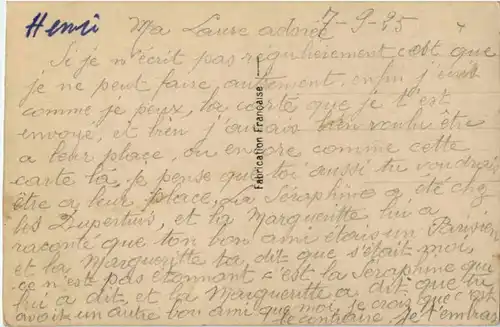 Henri
Ma Laure adorée 7-9-25
Si je n'ecrit pas régulierement c'est que
je ne peut faire autrement, enfin j'
comme je peux, la carte que je t'est
envoyé, et bien j'aurais bien voulu être
a leur place, ou encore comme cette
carte la, je pense que toi aussi tu voudrais
être a leur place, La Séraphine a été chez
les Dupertuis, et la Margueritte lui a
raconté que ton bon ami étais un Parisien
et la Margueritte ta dit que s'était moi,
ce n'est pas étonnant c'est la Seraphine qui
lui a dit, et la Margueritte a dit que tu
avait un autre bon ami que moi, je crois que c'est
le contraire, je t'embrasse
Fabrication Française